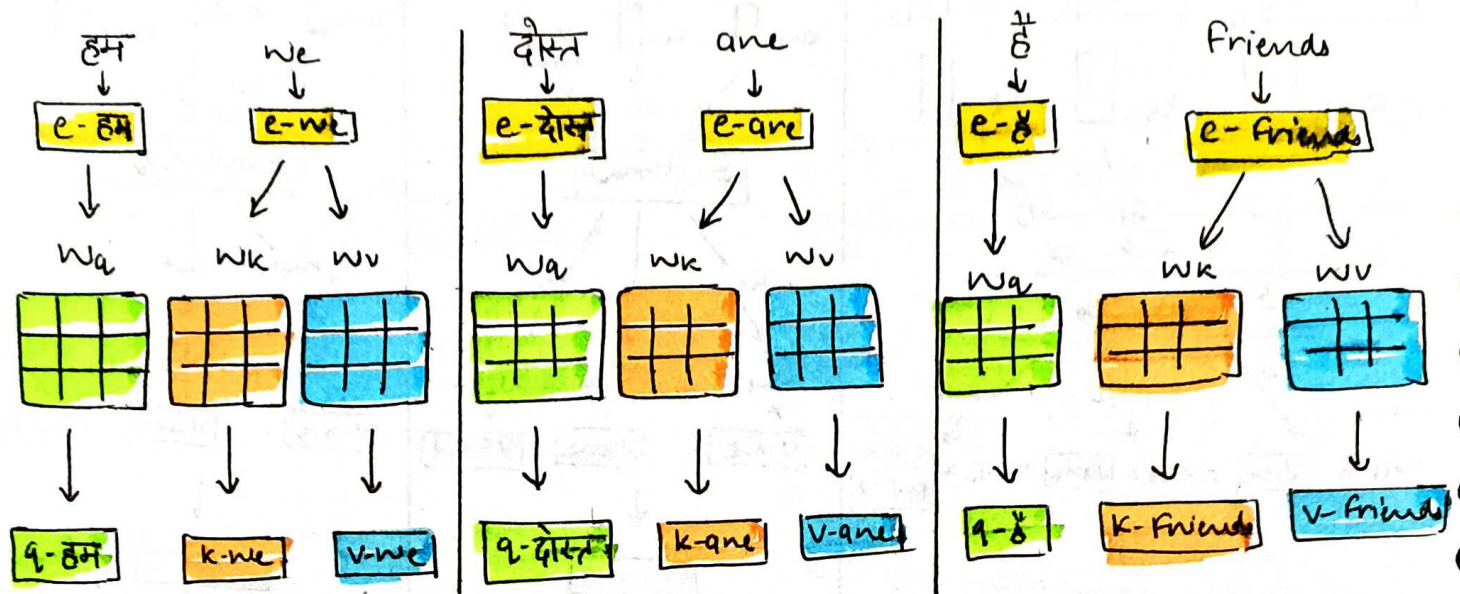 हम we
e-हम e-we
Wq Wk Wv
q-हम k-we v-we
दोस्त are
e-दोस्त e-are
Wq Wk Wv
q-दोस्त k-are v-are
हैं Friends
e-हैं e-Friends
Wq Wk Wv
q-हैं k-Friends v-Friends